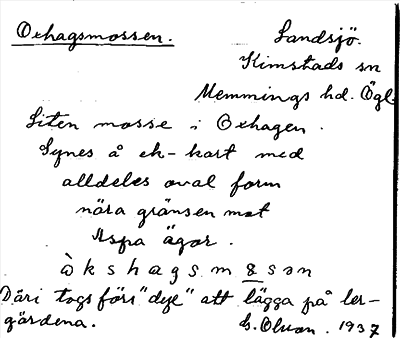 Oxhagsmossen.
Landsjö.
Kimstads sn
Memmings hd. Ögl.
Liten mosse i Oxhagen.
Synes å ek-kart med
alldeles oval form
nära gränsen mot
Aspa ägor.
ò k s h a g s m å s ə n
Däri togs förr "dye" att lägga på ler-
gärdena.
G. Olson. 1937